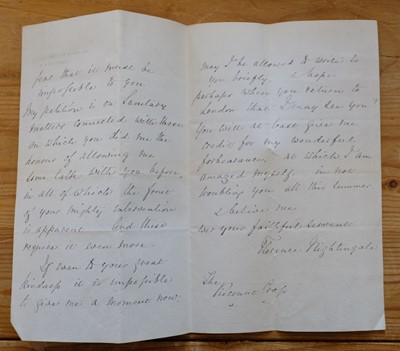 fear that it must be
impossible to you
My petition is on Sanitary
matters connected with those
on which you did me the
honour of allowing me
some talk with you before
in all of which the force
of your mighty intervention
is apparent And these
require it even more.
If even to your great
kindness it is impossible
to give me a moment now,
may I be allowed to write to
you briefly, & hope
perhaps when you return to
London that I may see you?
You will at least give me
credit for my wonderful
forbearance, at which I am
amazed myself, in not
troubling you all this summer
& believe me
ever your faithful servant
Florence Nightingale
The
Viscount Cross